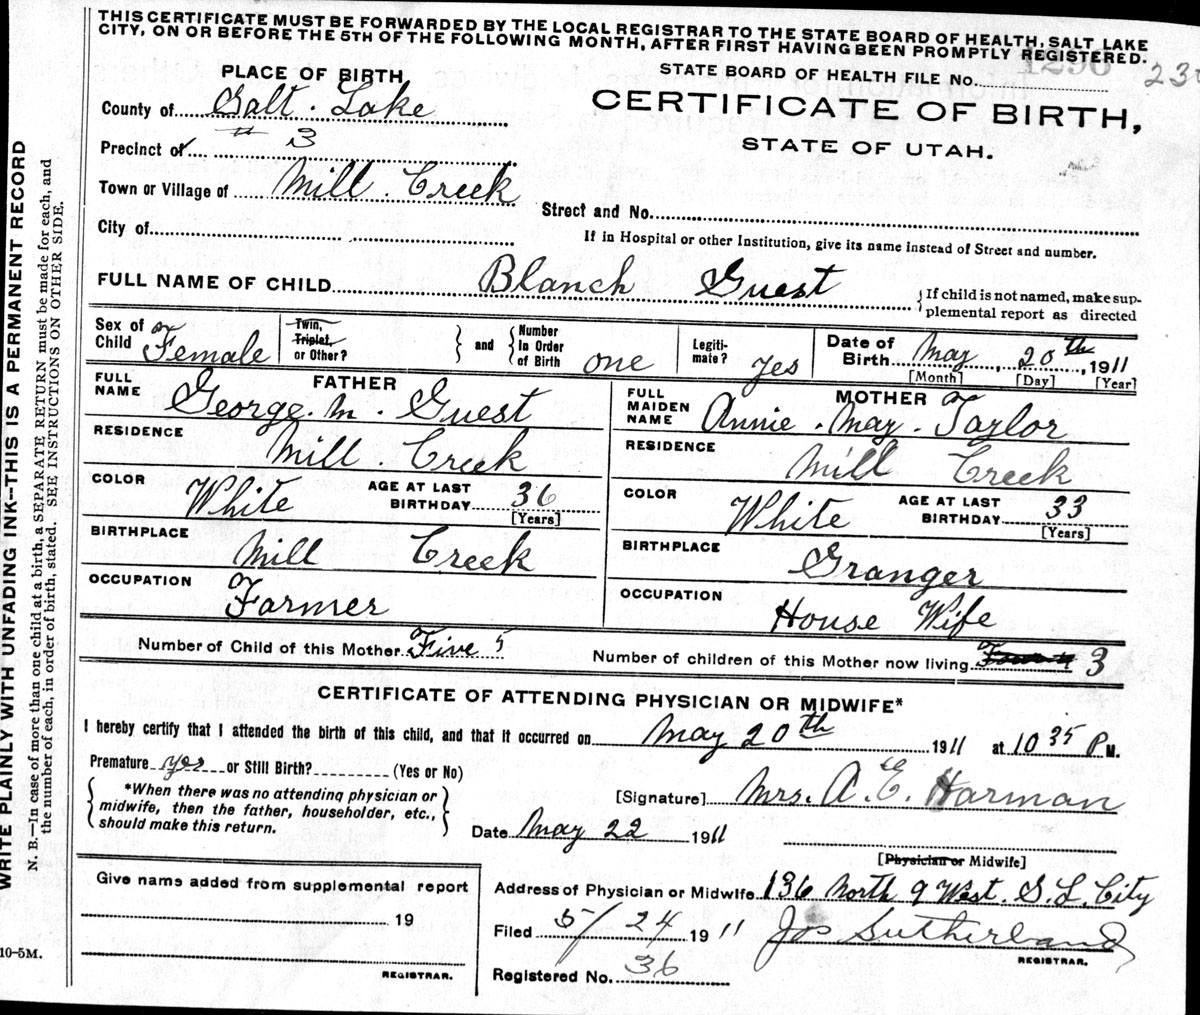 THIS CERTIFICATE MUST BE FORWARDED BY THE LOCAL REGISTRAR TO THE STATE BOARD OF HEALTH, SALT LAKE
CITY, ON OR BEFORE THE 5TH OF THE FOLLOWING MONTH, AFTER FIRST HAVING BEEN PROMPTLY REGISTERED.
PLACE OF BIRTH,
STATE BOARD OF HEALTH FILE NO. 1296
County of Salt Lake
CERTIFICATE OF BIRTH,
Precinct of # 3
STATE OF UTAH.
Town or Village of Mill Creek
Street and No.
City of
If in Hospital or other Institution, give its name instead of Street and number.
FULL NAME OF CHILD Blanch Guest
If child is not named, make sup-
plemental report as directed
Sex of Child Female
Twin, Triplet, or Other?
and
Number In Order of Birth one
Legiti-mate? Yes
Date of Birth May 20th, 1911
[Month] [Day] [Year]
FATHER
FULL NAME George. M. Guest
RESIDENCE Mill Creek
COLOR White AGE AT LAST BIRTHDAY 36 [Years]
BIRTHPLACE Mill Creek
OCCUPATION Farmer
MOTHER
FULL MAIDEN NAME Annie. May. Taylor
RESIDENCE Mill Creek
COLOR White AGE AT LAST BIRTHDAY 33 [Years]
BIRTHPLACE Granger
OCCUPATION House Wife
Number of Child of this Mother Five 5
Number of children of this Mother now living 3
CERTIFICATE OF ATTENDING PHYSICIAN OR MIDWIFE*
I hereby certify that I attended the birth of this child, and that it occurred on May 20th 1911 at 10 35 P M.
Premature yes or Still Birth? (Yes or No)
*When there was no attending physician or
midwife, then the father, householder, etc.,
should make this return.
[Signature] Mrs. A. E. Harman
Date May 22 1911
[Physician or Midwife]
Give name added from supplemental report
19
REGISTRAR.
Address of Physician or Midwife 136 North 9 West. S. L. City
Filed 5/24 1911 Jos Sutherland
REGISTRAR.
Registered No. 36
WRITE PLAINLY WITH UNFADING INK--THIS IS A PERMANENT RECORD
N. B.—In case of more than one child at a birth, a SEPARATE RETURN must be made for each, and
the number of each, in order of birth, stated. SEE INSTRUCTIONS ON OTHER SIDE.
10-5M.